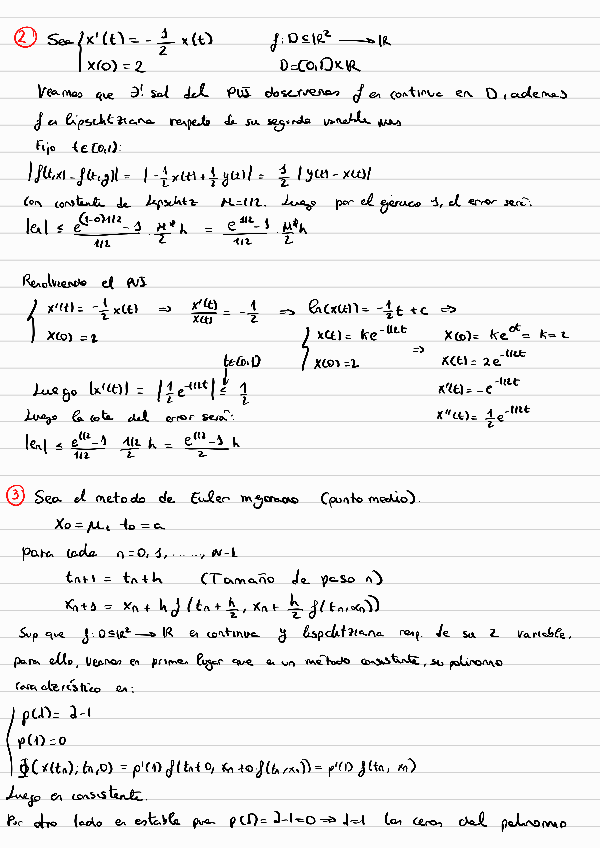 ② Sea { x'(t) = -1/2 x(t)    f: D⊆ℝ² → ℝ
x(0) = 2    D = [0,1]×ℝ
Veamos que ∃! sol del PVI observemos f es continua en D, además
f es lipschtziana respecto de su segunda variable
Fijo t∈[0,1]:
|f(t,x) - f(t,y)| = |-1/2 x(t) + 1/2 y(t)| = 1/2 |y(t) - x(t)|
Con constante de Lipschtz M=1/2. Luego por el ejercicio 1, el error será:
|en| ≤ (e^((1-0)1/2) - 1)/(1/2) · M*/2 h = (e^(1/2) - 1)/(1/2) · M*/2 h
Resolviendo el PVI
{ x'(t) = -1/2 x(t) ⇒ x'(t)/x(t) = -1/2 ⇒ ln(x(t)) = -1/2 t + c ⇒
x(0) = 2
{ x(t) = k e^(-1/2t) ⇒ x(0) = k e^0 = k = 2
x(0) = 2    x(t) = 2e^(-1/2t)
t∈[0,1]    x'(t) = -e^(-1/2t)
Luego |x''(t)| = |1/2 e^(-1/2t)| ≤ 1/2
Luego la cota del error será:    x''(t) = 1/2 e^(-1/2t)
|en| ≤ (e^(1/2) - 1)/(1/2) (1/2)/2 h = (e^(1/2) - 1)/2 h
③ Sea el metodo de Euler mejorado (punto medio).
x0 = μ, t0 = a
para cada n = 0, 1, ......, N-1
tn+1 = tn + h    (Tamaño de paso h)
xn+1 = xn + h f(tn + h/2, xn + h/2 f(tn,xn))
Sup que f: D⊆ℝ² → ℝ es continua y lispchtziana resp. de su 2 variable,
para ello, veamos en primer lugar que es un método consistente, su polinomo
característico es:
{ p(λ) = λ-1
p(1) = 0
Φ(x(tn); tn, 0) = p'(1) f(tn+0, xn+0·f(tn,xn)) = p'(1) f(tn, xn)
Luego es consistente.
Por otro lado es estable pues p(λ) = λ-1 = 0 ⇒ λ=1 los ceros del polinomo